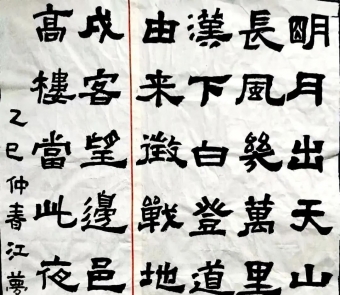 明月出天山
長風幾萬里
漢下白登道
由来徵戰地
戍客望邊邑
高樓當此夜
乙巳仲春江夢